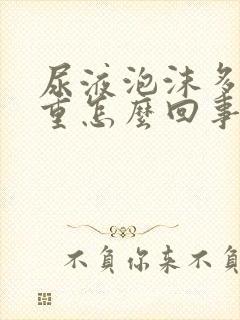 尿液泡沫多
重怎麼回事
不負你来不負